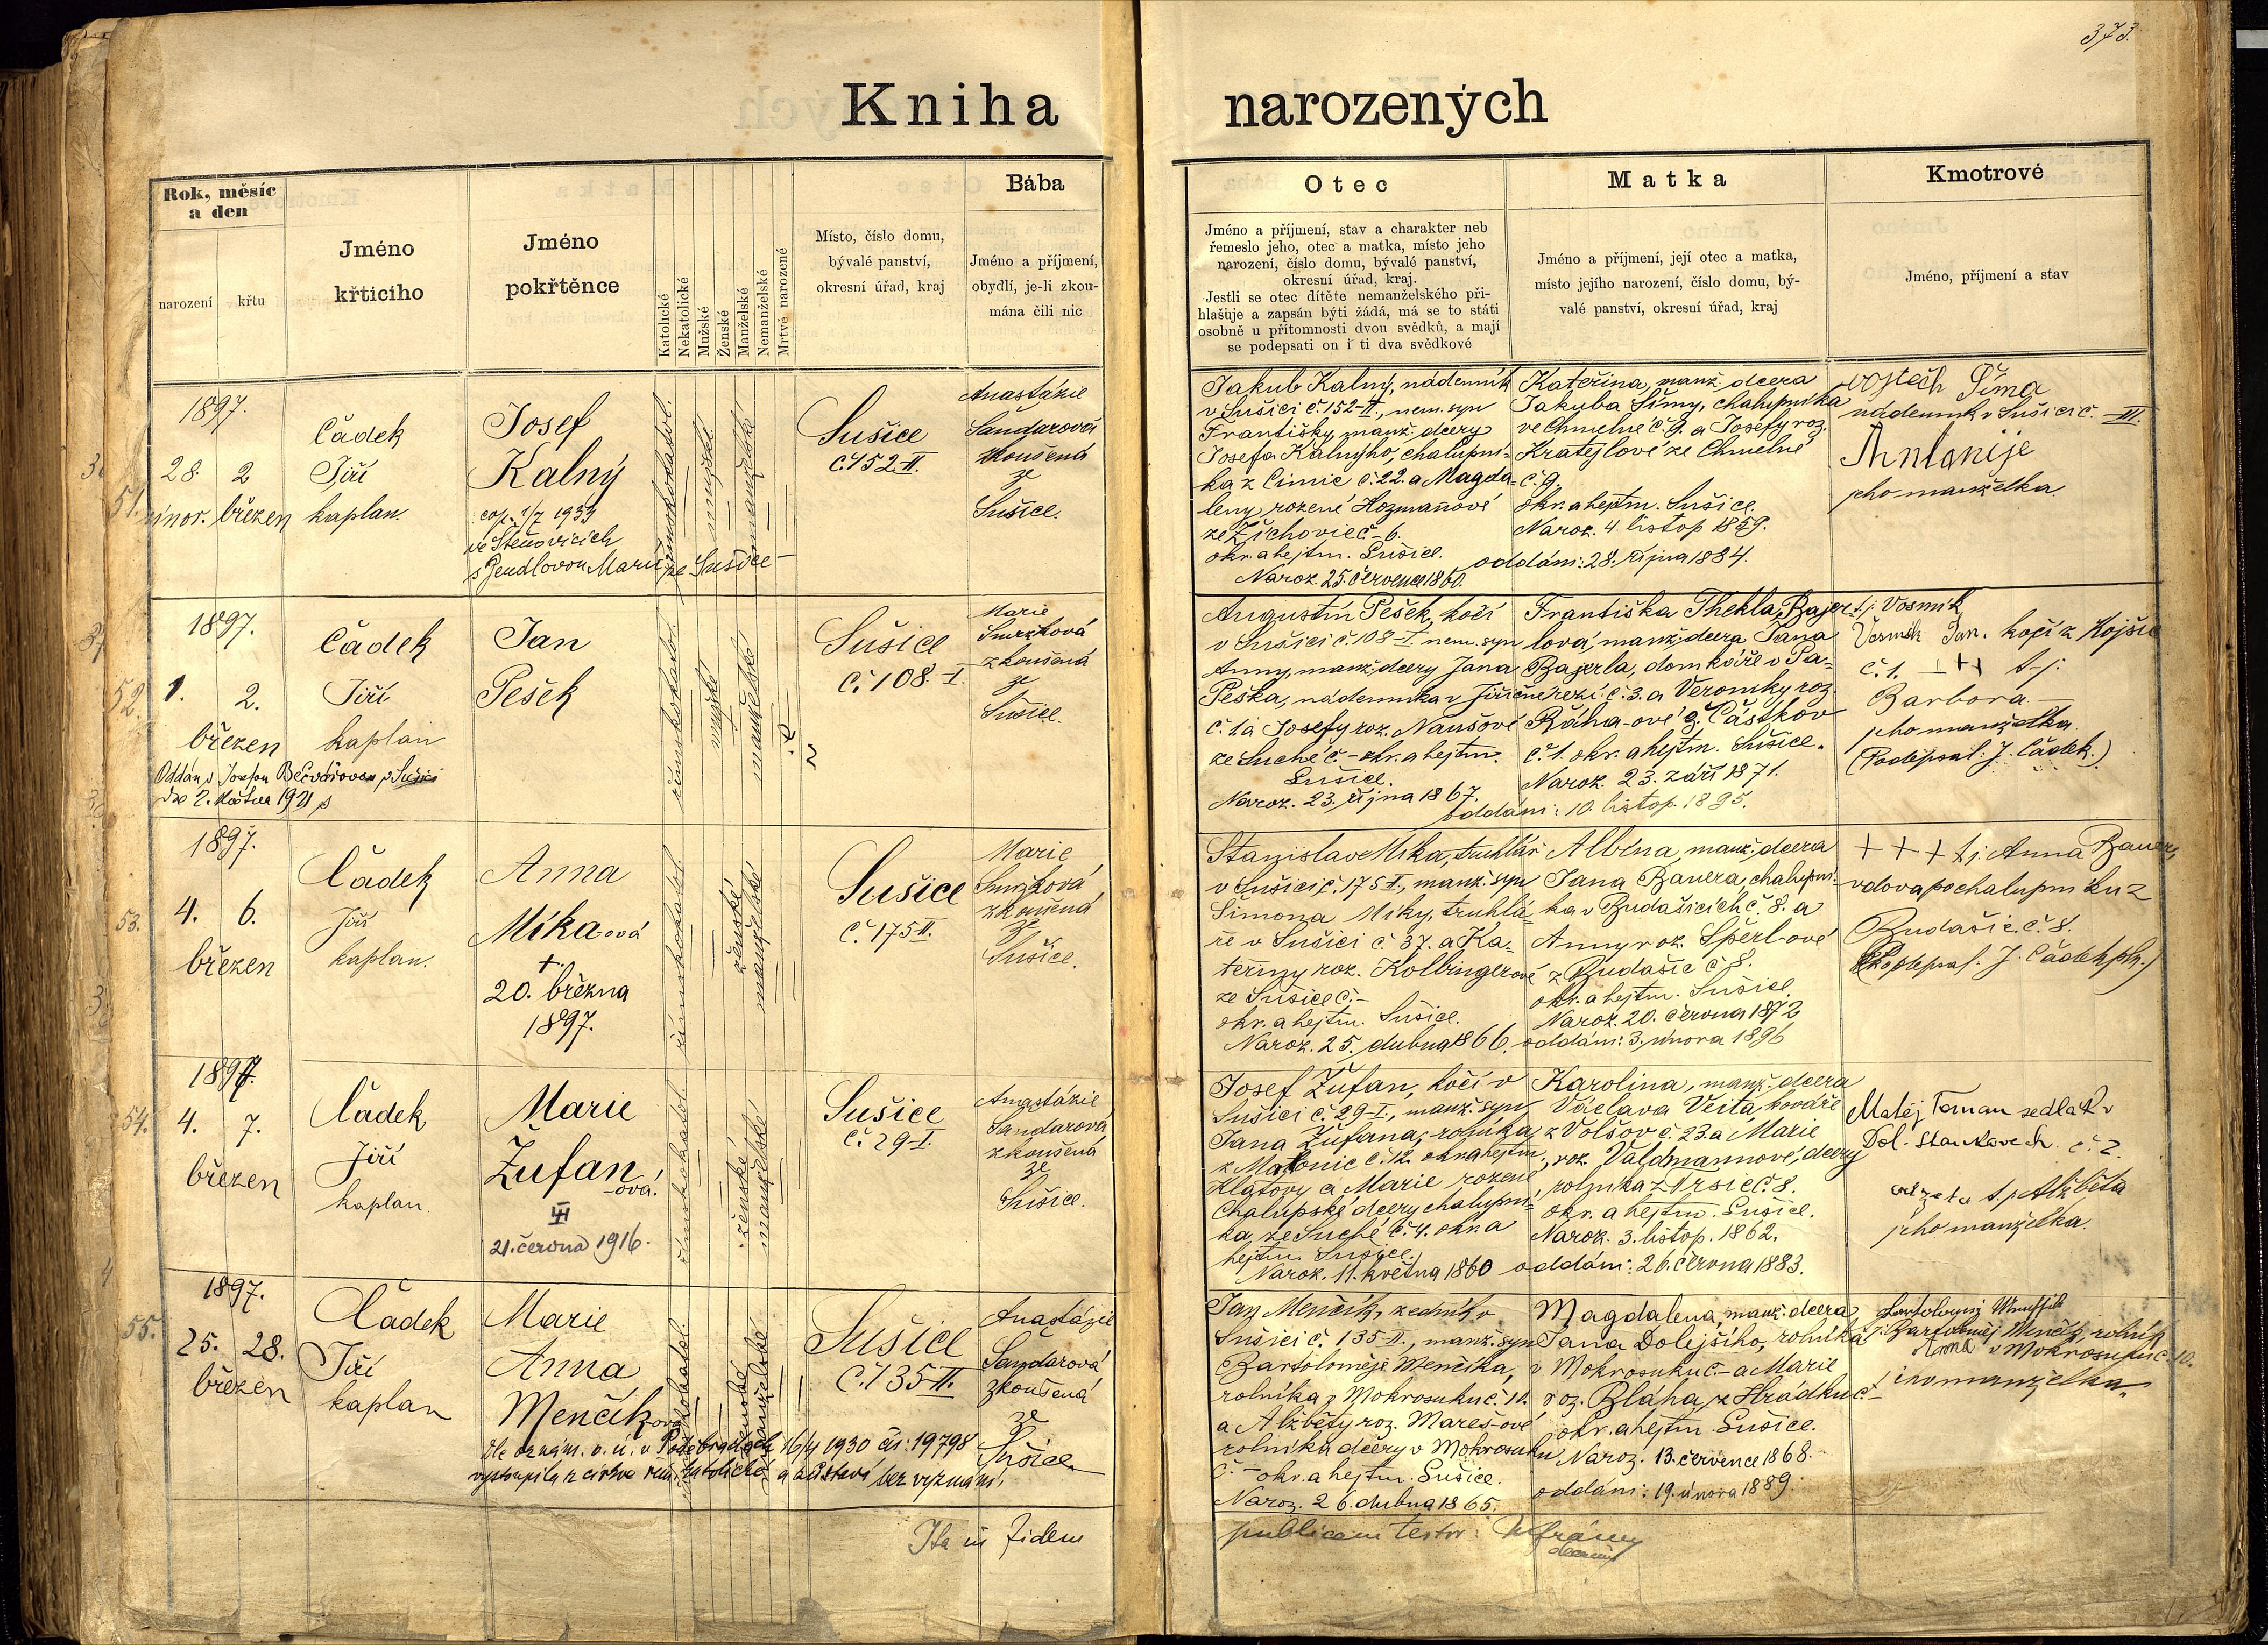 373.
Kniha narozených
Rok, měsíc
a den
narození
křtu
Jméno
křticího
Jméno
pokřtěnce
Katolické
Nekatolické
Mužské
Ženské
Manželské
Nemanželské
Mrtvě narozené
Místo, číslo domu,
bývalé panství,
okresní úřad, kraj
Bába
Jméno a příjmení,
obydlí, je-li zkou-
mána čili nic
Otec
Jméno a příjmení, stav a charakter neb
řemeslo jeho, otec a matka, místo jeho
narození, číslo domu, bývalé panství,
okresní úřad, kraj.
Jestli se otec dítěte nemanželského při-
hlašuje a zapsán býti žádá, má se to státi
osobně u přítomnosti dvou svědků, a mají
se podepsati on i ti dva svědkové
Matka
Jméno a příjmení, její otec a matka,
místo jejího narození, číslo domu, bý-
valé panství, okresní úřad, kraj
Kmotrové
Jméno, příjmení a stav
51.
1897.
28. 2
únor. březen
Čádek
Jiří
kaplan.
Josef
Kalný
cop. 1/7 1939
ve Štěnovicích
s Marií ze Sušice
mužské
manželské
Sušice
č. 152-II.
Anastázie
Šandarová
zkoušená
ze
Sušice.
Jakub Kalný, nádenník
v Sušici č. 152-II., nem. syn
Františky, manž. dcery
Josefa Kalnýho, chalupní-
ka z Čimic č. 22. a Magda-
leny, rozené Hozmanové
ze Žichovic č - 6.
okr. a hejtm. Sušice.
Naroz. 25. července 1860.
Kateřina, manž. dcera
Jakuba Šímy, chalupníka
ve Chmelné č. 9. a Josefy roz.
Kratejlové ze Chmelné
č. 9.
okr. a hejtm. Sušice.
Naroz. 4. listop 1859.
oddáni: 28. října 1884.
Vojtěch Šíma
nádenník v Sušici č. - III.
Antonije
jeho manželka.
52.
1897.
1. 2.
březen
Čádek
Jiří
kaplan
Jan
Pešek
Oddán s Josefou Bečvářovou v Sušici
dne 2. 1921
mužské
manželské
Sušice
č. 108-I.
Marie
Smržková
zkoušená
ze
Sušice.
Augustin Pešek, kočí
v Sušici č. 108-I. nem. syn
Anny, manž. dcery Jana
Peška, nádenníka v Jiřičné
č. 1 a Josefy roz. Naušové
ze Suché č - okr. a hejtm.
Sušice.
Naroz. 23. října 1867.
Františka Thekla Bajer-
lová, manž. dcera Jana
Bajerla, domkáře v Pa-
řezí č. 3. a Veroniky roz.
Bláha-ové z Částkov
č. 1. okr. a hejtm. Sušice.
Naroz. 23. září 1871.
oddáni: 10. listop. 1895.
t. j. Vosmík
Vosmík Jan. kočí z Kojšic
č. 1. +++ t. j.
Barbora
jeho manželka.
(Podepsal: J. Čádek.)
53.
1897.
4. 6.
březen
Čádek
Jiří
kaplan.
Anna
Míka-ová
+
20. března
1897.
ženské
manželské
Sušice
č. 175-II.
Marie
Smržková
zkoušená
ze
Sušice.
Stanislav Míka, truhlář
v Sušici č. 175 II., manž. syn
Šimona Míky, truhlá-
ře v Sušici č. 37. a Ka-
teřiny roz. Kolbingerové
ze Sušice č. -
okr. a hejtm. Sušice.
Naroz. 25. dubna 1866.
Albína, manž. dcera
Jana Bauera, chalupní-
ka v Budašicích č. 8. a
Anny roz. Šperl-ové
z Budašic č. 8.
okr. a hejtm. Sušice.
Naroz. 20. června 1872
oddáni: 3. února 1896
+ + + t. j. Anna Bauer,
vdova po chalupníku z
Budašic č. 8.
(Podepsal. J. Čádek)
54.
1897.
4. 7.
březen
Čádek
Jiří
kaplan.
Marie
Žufan
-ová.
21. června 1916.
ženské
manželské
Sušice
č. 29-I.
Anastázie
Šandarová
zkoušená
ze
Sušice.
Josef Žufan, kočí v
Sušici č. 29-I., manž. syn
Jana Žufana, rolníka
z Matonic č. 12. okr. a hejtm.
Klatovy a Marie rozené
Chalupské dcery chalupní-
ka, ze Suché č. 4. okr. a
hejtm. Sušice.
Naroz. 11. května 1860
Karolina, manž. dcera
Václava Veita, kováře
z Volšov č. 23. a Marie
roz. Valdmannové, dcery
rolníka z Vrsic č. 8.
okr. a hejtm. Sušice.
Naroz. 3. listop. 1862.
oddáni: 26. června 1883.
Matěj Toman sedlák v
Dol. Staňkovech č. 2.
t. j. Alžběta
jeho manželka.
55.
1897.
25. 28.
březen
Čádek
Jiří
kaplan
Marie
Anna
Menčík-ová
Dle oznám. o. ú. v Poděbradech 16/4 1930 čís: 19798
vystoupila z církve řím. katolické a zůstává bez vyznání.
ženské
manželské
Sušice
č. 135-II.
Anastázie
Šandarová
zkoušená
ze
Sušice.
Jan Menčík, zedník v
Sušici č. 135-II., manž. syn
Bartoloměje Menčíka,
rolníka z Mokrosuku č. 10.
a Alžběty roz. Marešové
rolníka dcery v Mokrosuku
č. - okr. a hejtm. Sušice.
Naroz. 26. dubna 1865.
Magdalena, manž. dcera
Jana Dolejšího, rolníka
v Mokrosuku č. - a Marie
roz. Bláha, z Hrádku č -
okr. a hejtm. Sušice.
Naroz. 13. července 1868.
oddáni: 19. února 1889.
Bartoloměj Menčík, rolník
v Mokrosuku č. 10.
Anna
jeho manželka.
Ita in fidem
publicam testor: